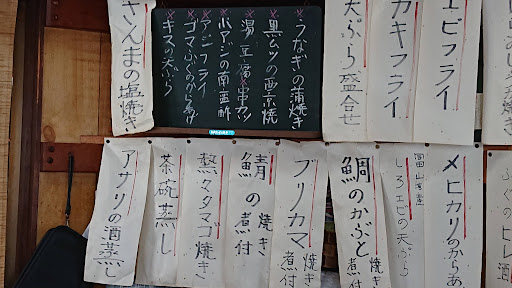 エビフライ
カキフライ
天ぷら盛合せ
うなぎの蒲焼き
黒ムツの西京焼
湯豆腐 串カツ
小アジの南蛮酢
アジフライ
ゴマふぐのからあげ
キスの天ぷら
さんまの塩焼き
ふぐのヒレ酒
メヒカリのからあ
富山湾産
しろエビの天ぷら
鯛のかぶと 焼き
煮付
ブリカマ 焼き
煮付
鯖の 焼き
煮付
熱々タマゴ焼き
茶碗蒸し
アサリの酒蒸し